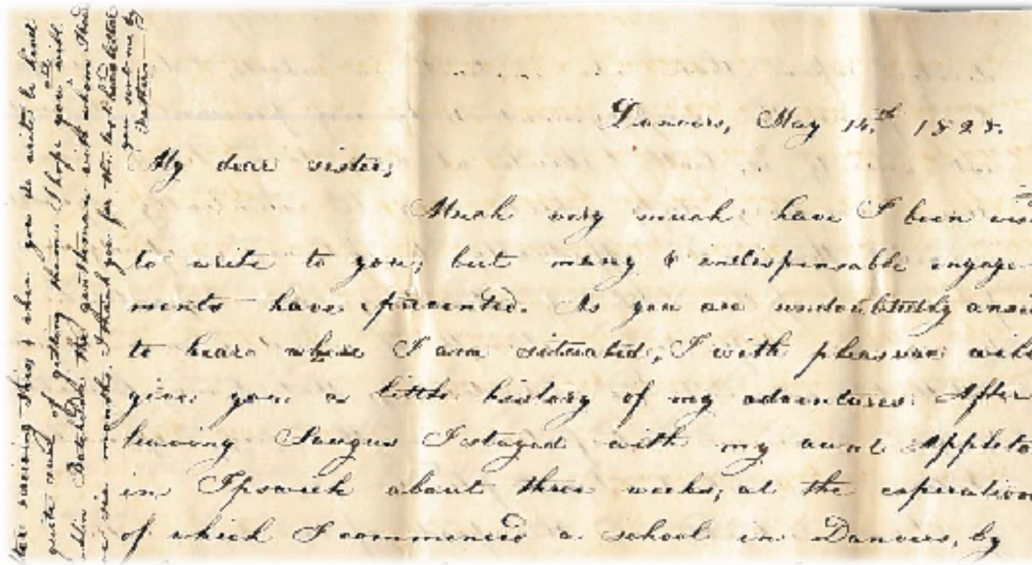 Danvers, May 14.th 1828.
My dear sister,
Much very much have I been
to write to you, but many & indispensable engage-
ments have prevented. As you are undoubtedly
to hear where I am situated, I with pleasure will
give you a little history of my adventures. After
leaving Saugus I stayed with my aunt Appleton
in Ipswich about three weeks, at the expiration
of which I commenced a school in Danvers, by
receiving this, & when you do write be kind
quite of getting them. I hope you will
Batchelder, the gentleman with whom
six months. I thank you for the last letter
you sent me by
Father.